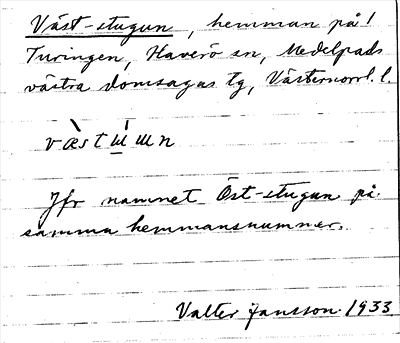 Väst-stugun, hemman på 1
Turingen, Haverö sn, Medelpads
västra domsagas tg, Västernorrl. l.
Jfr namnet Öst-stugun på
samma hemmansnummer.
Valter Jansson 1933